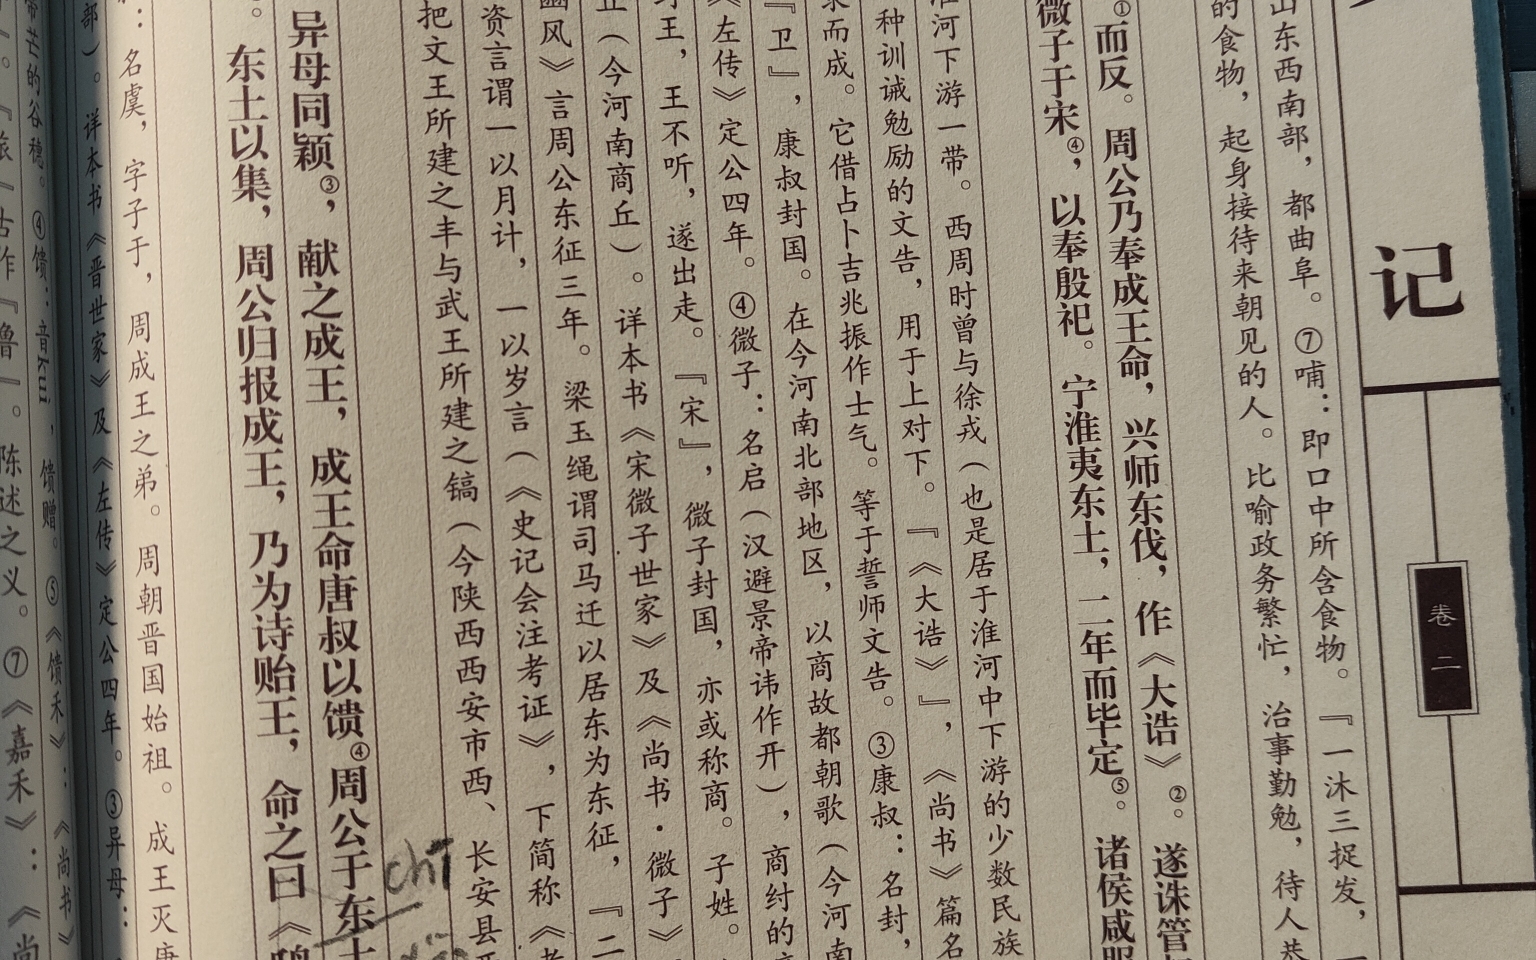 记
卷二
山东西南部，都曲阜。⑦哺：即口中所含食物。『一沐三捉发，一
的食物，起身接待来朝见的人。比喻政务繁忙，治事勤勉，待人恭
①而反。周公乃奉成王命，兴师东伐，作《大诰》②。遂诛管
微子于宋④，以奉殷祀。宁淮夷东土，二年而毕定⑤。诸侯咸服
淮河下游一带。西周时曾与徐戎（也是居于淮河中下游的少数民族
种训诫勉励的文告，用于上对下。『《大诰》』，《尚书》篇名
而成。它借占卜吉兆振作士气。等于誓师文告。③康叔：名封，
『卫』，康叔封国。在今河南北部地区，以商故都朝歌（今河南
《左传》定公四年。④微子：名启（汉避景帝讳作开），商纣的
王，王不听，遂出走。『宋』，微子封国，亦或称商。子姓。
（今河南商丘）。详本书《宋微子世家》及《尚书·微子》
豳风》言周公东征三年。梁玉绳谓司马迁以居东为东征，『二
资言谓一以月计，一以岁言（《史记会注考证》，下简称《考
把文王所建之丰与武王所建之镐（今陕西西安市西、长安县
chī
异母同颖③，献之成王，成王命唐叔以馈④周公于东土
。东土以集，周公归报成王，乃为诗贻王，命之曰《鸱
：名虞，字子于，周成王之弟。周朝晋国始祖。成王灭唐
部）。详本书《晋世家》及《左传》定公四年。③异母：
带芒的谷穗。④馈：音kuì，馈赠。⑤《馈禾》：《尚书》
陈述之义。⑦《嘉禾》：《尚